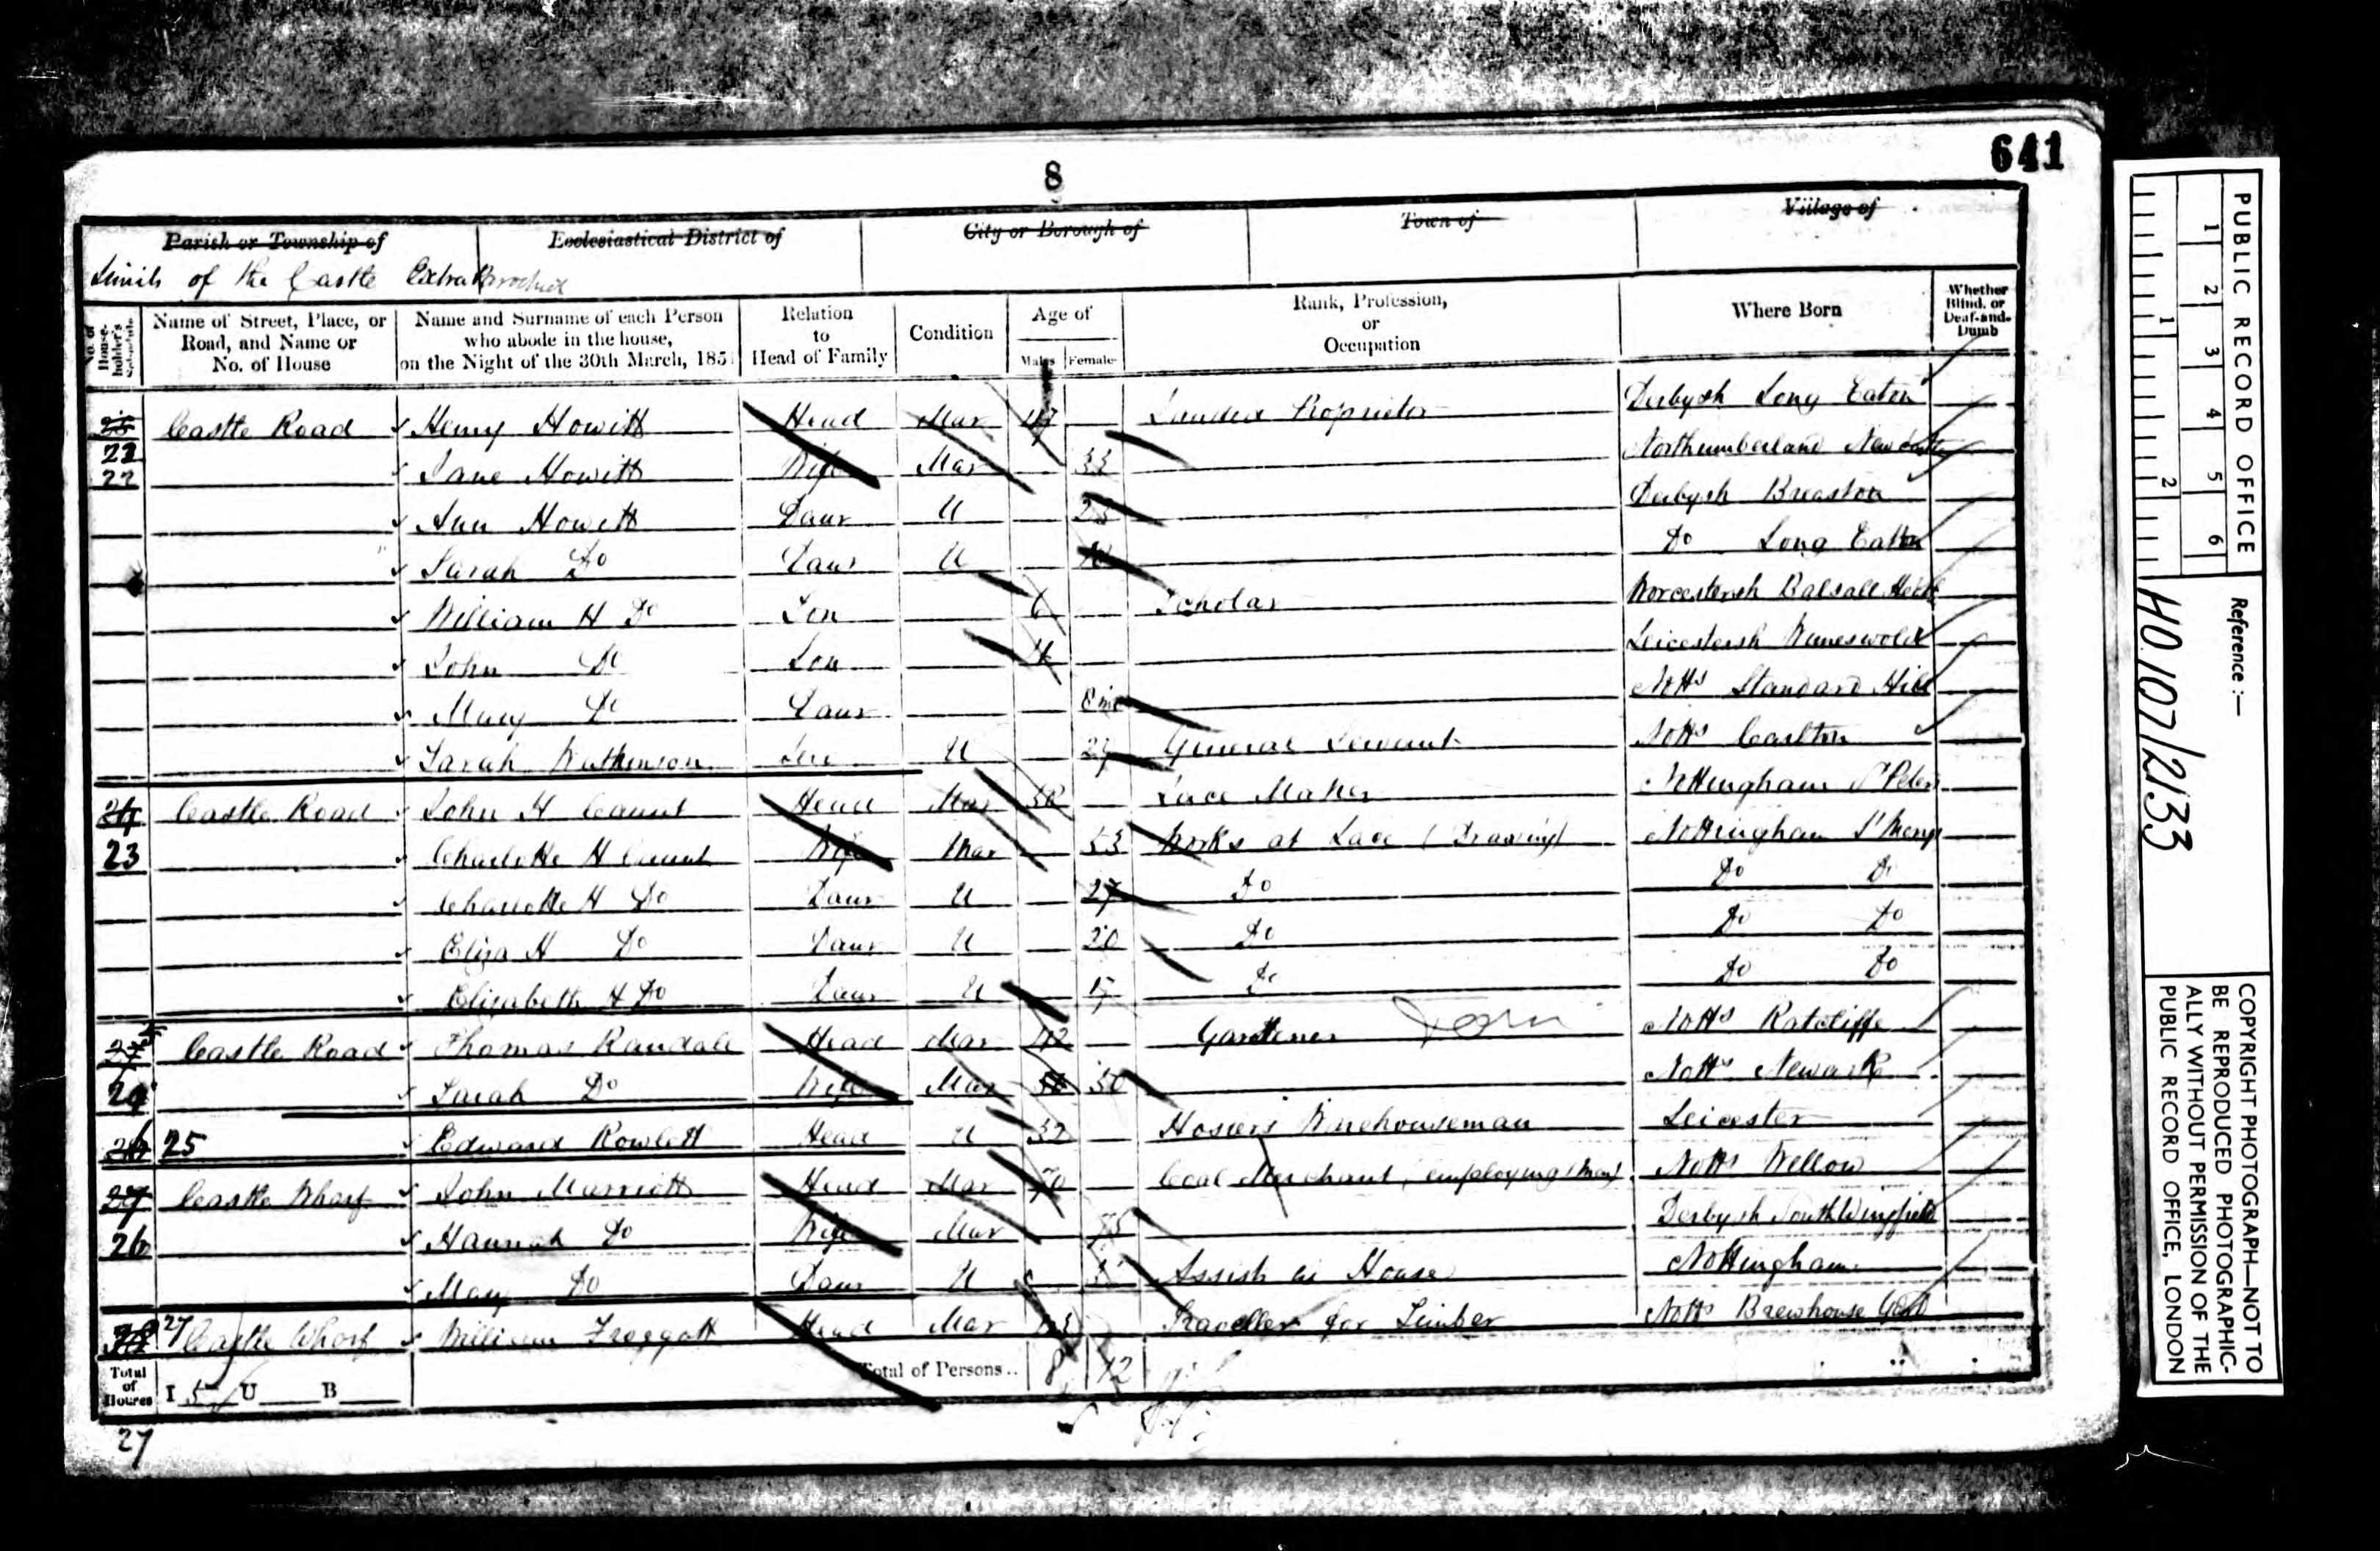 641
8
Parish or Township of Ecclesiastical District of City or Borough of Town of Village of
Limits of the Castle Extra Parochial
No. of House-holder's Schedule Name of Street, Place, or Road, and Name or No. of House Name and Surname of each Person who abode in the house, on the Night of the 30th March, 1851 Relation to Head of Family Condition Age of Males Females Rank, Profession, or Occupation Where Born Whether Blind, or Deaf-and-Dumb
Castle Road Henry Howitt Head Mar 47 Landed Proprietor Derbysh Long Eaton
22 Jane Howitt Wife Mar 33 Northumberland Newcastle
22 Ann Howitt Daur U Derbysh Breaston
Sarah Do Daur U Do Long Eaton
William H Do Son 6 Scholar Worcestersh Balsall Heath
John Do Son 4 Leicestersh Wimeswold
Mary Do Daur 8 mo Notts Standard Hill
Sarah Watkinson Ser U General Servant Notts Carlton
24 Castle Road John H Caunt Head Mar 52 Lace Maker Nottingham St Peters
23 Charlotte H Caunt Wife Mar 53 Works at Lace (Drawing) Nottingham St Marys
Charlotte H Do Daur U 27 Do Do Do
Eliza H Do Daur U 20 Do Do Do
Elizabeth H Do Daur U 17 Do Do Do
Castle Road Thomas Randall Head Mar 42 Gardener Notts Ratcliffe
24 Sarah Do Wife Mar 50 Notts Newark
26 25 Edward Rowlett Head U 32 Hosiers Warehouseman Leicester
27 Castle Wharf John Marriott Head Mar 70 Coal Merchant, employing Notts Wellow
26 Hannah Do Wife Mar 75 Derbysh South Wingfield
Mary Do Daur U Assists in House Nottingham
28 27 Castle Wharf William Froggatt Head Mar Traveller for Timber Notts Brewhouse Yard
Total of Houses I 5 U B Total of Persons.. 8 12
27
PUBLIC RECORD OFFICE
1 2 3 4 5 6
1 2
Reference:—
HO.107/2133
COPYRIGHT PHOTOGRAPH—NOT TO BE REPRODUCED PHOTOGRAPHICALLY WITHOUT PERMISSION OF THE PUBLIC RECORD OFFICE, LONDON